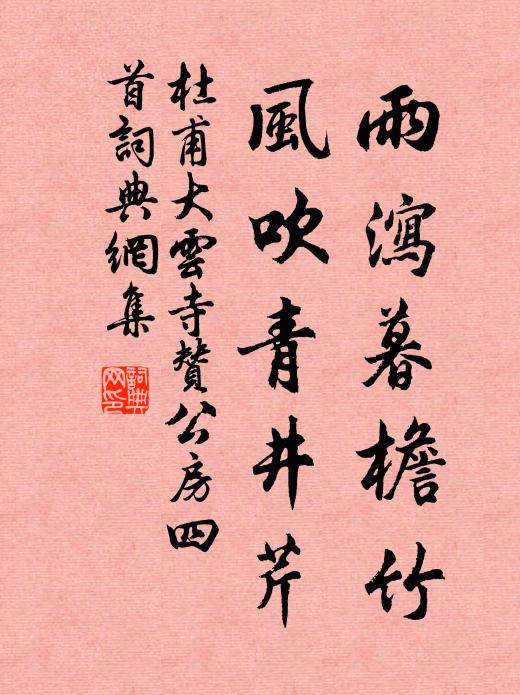 雨瀉暮檐竹
風吹青井芹
杜甫大雲寺贊公房四
首詞典網集
詞典
网印